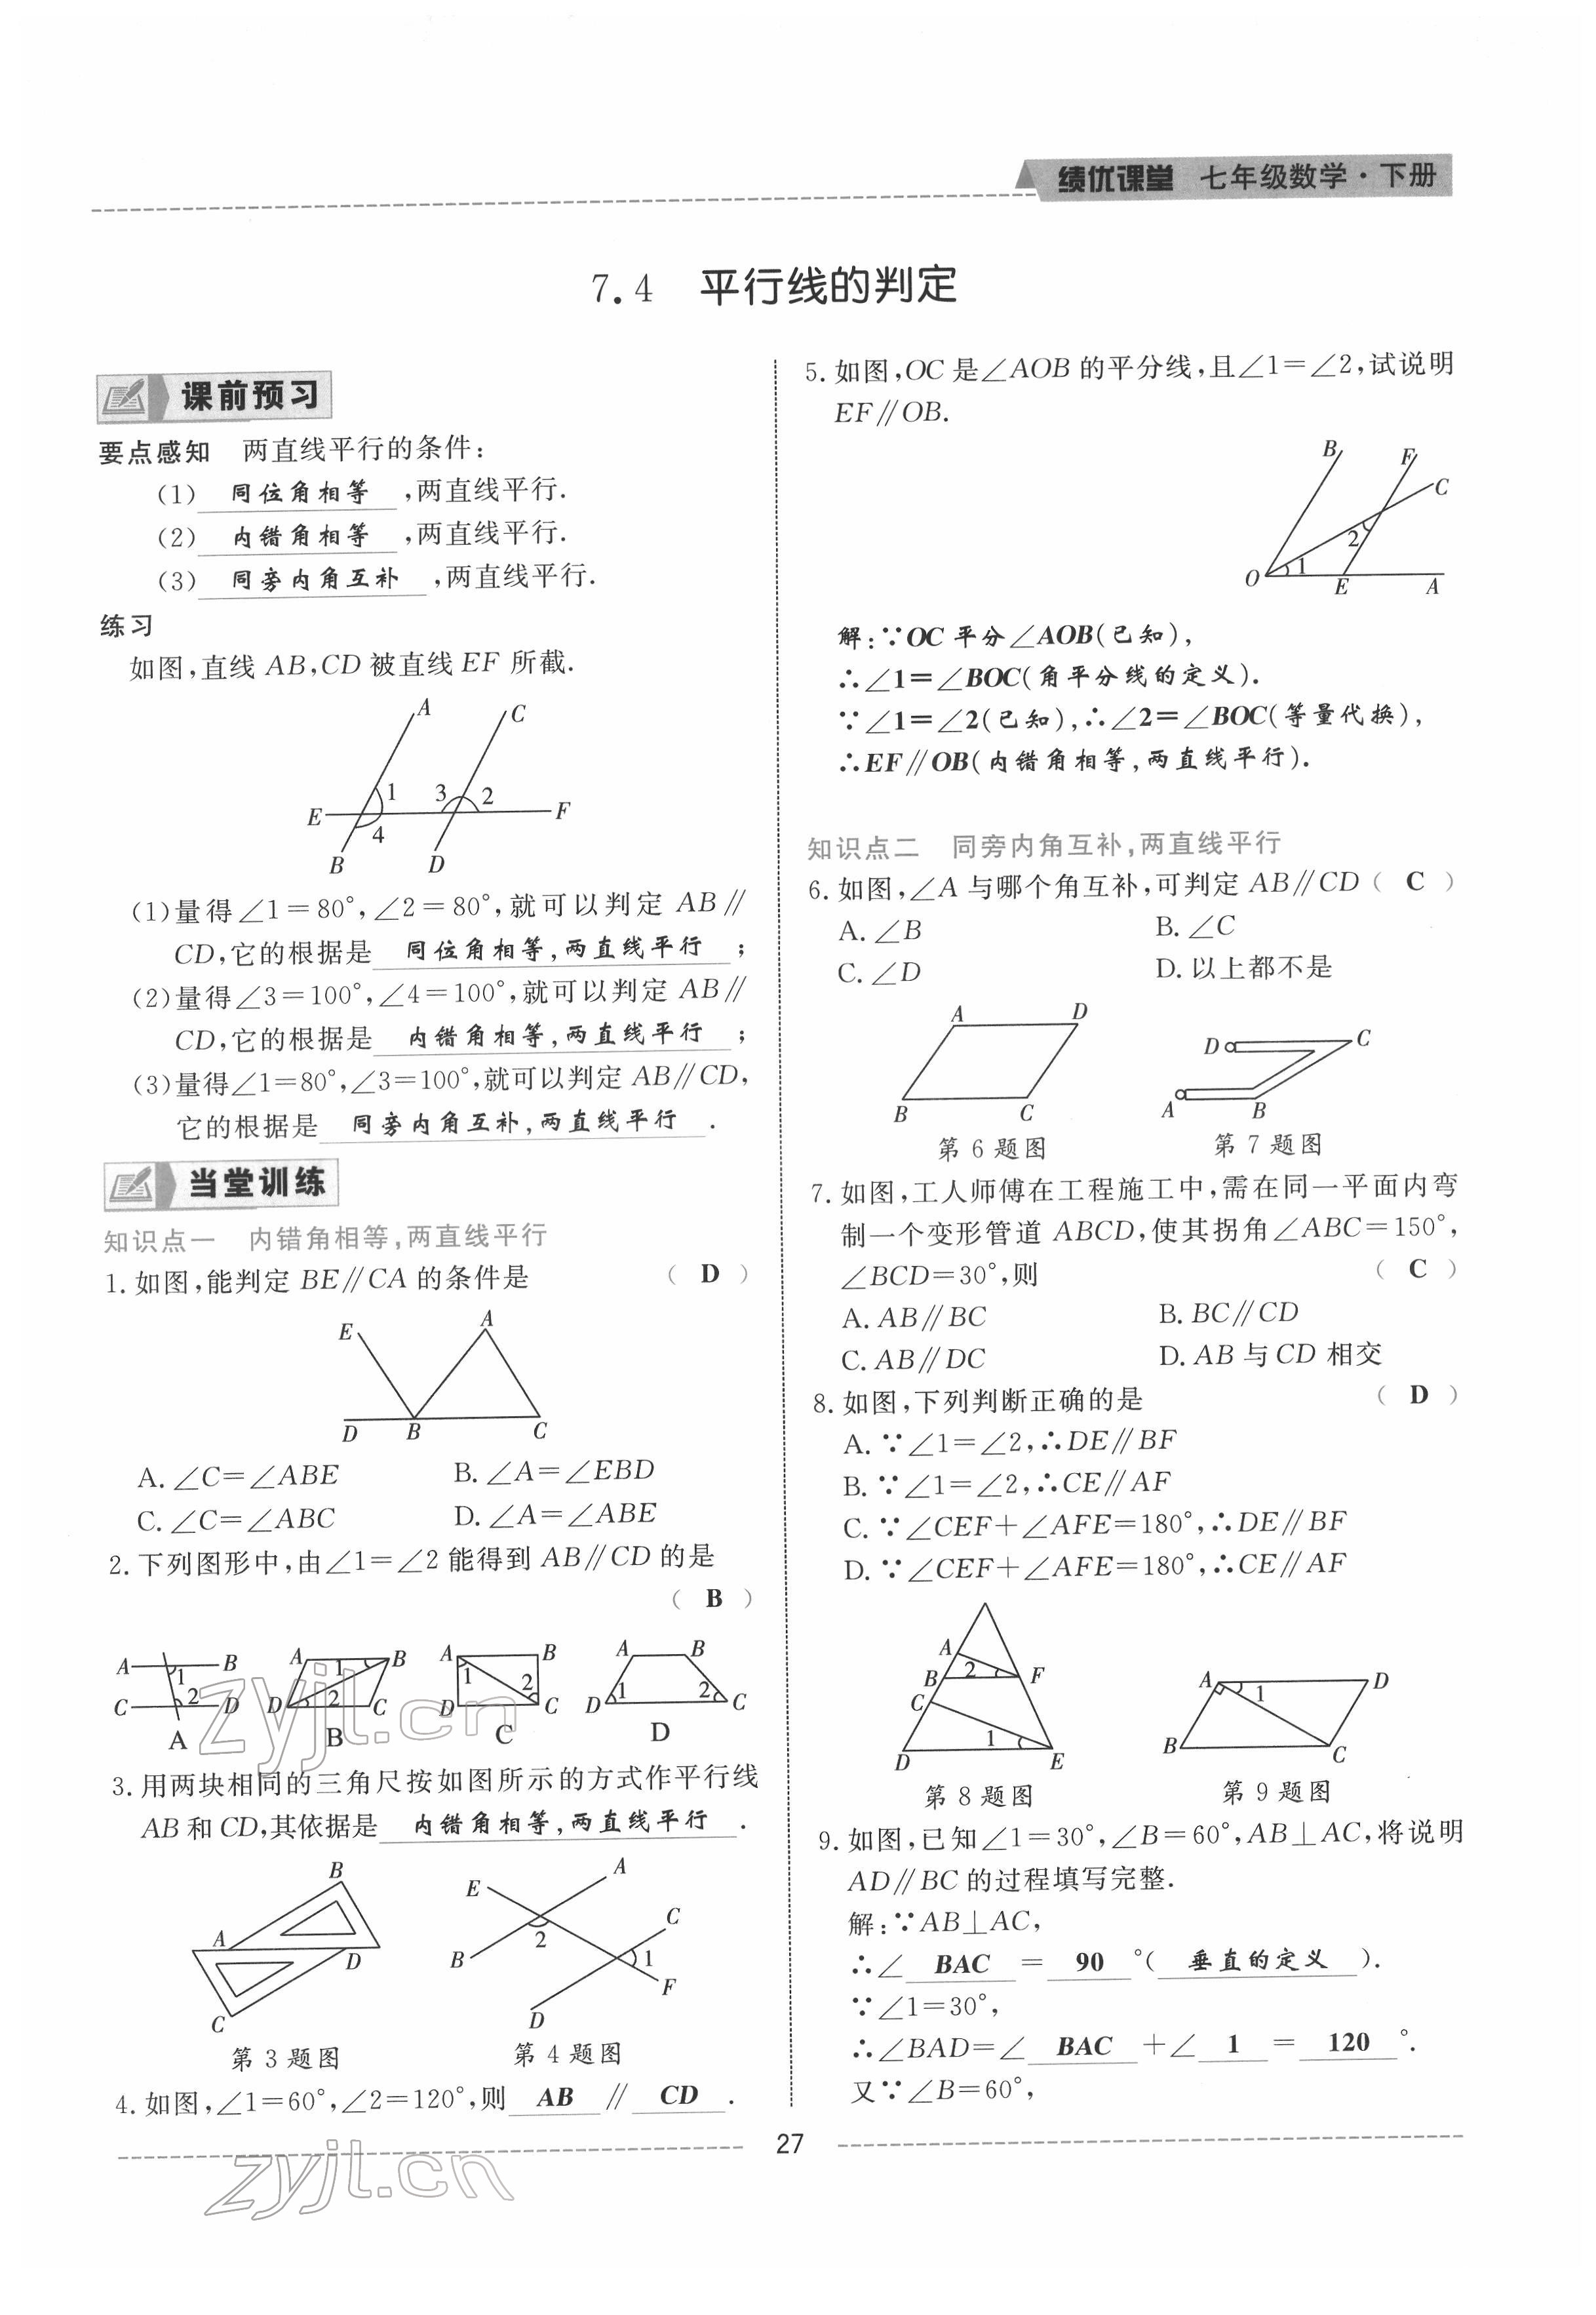 绩优课堂 七年级数学·下册
7.4 平行线的判定
课前预习
要点感知 两直线平行的条件:
(1) 同位角相等 ,两直线平行.
(2) 内错角相等 ,两直线平行.
(3) 同旁内角互补 ,两直线平行.
练习
如图,直线 AB,CD 被直线 EF 所截.
A C
1 3 2
E F
4
B D
(1)量得∠1=80°,∠2=80°,就可以判定 AB∥
CD,它的根据是 同位角相等,两直线平行 ;
(2)量得∠3=100°,∠4=100°,就可以判定 AB∥
CD,它的根据是 内错角相等,两直线平行 ;
(3)量得∠1=80°,∠3=100°,就可以判定 AB∥CD,
它的根据是 同旁内角互补,两直线平行 .
当堂训练
知识点一 内错角相等,两直线平行
1.如图,能判定 BE∥CA 的条件是 ( D )
E A
D B C
A.∠C=∠ABE B.∠A=∠EBD
C.∠C=∠ABC D.∠A=∠ABE
2.下列图形中,由∠1=∠2能得到 AB∥CD 的是
( B )
A B A B A B A B
1 1 1
C 2 D D 2 C D 2 C D 1 2 C
A B C D
3.用两块相同的三角尺按如图所示的方式作平行线
AB 和 CD,其依据是 内错角相等,两直线平行 .
B
A D
C
E A
C
B 2 1
F
D
第3题图 第4题图
4.如图,∠1=60°,∠2=120°,则 AB ∥ CD .
5.如图,OC 是∠AOB 的平分线,且∠1=∠2,试说明
EF∥OB.
B F
C
2
O 1 E A
解:∵OC 平分∠AOB(已知),
∴∠1=∠BOC(角平分线的定义).
∵∠1=∠2(已知),∴∠2=∠BOC(等量代换),
∴EF∥OB(内错角相等,两直线平行).
知识点二 同旁内角互补,两直线平行
6.如图,∠A 与哪个角互补,可判定 AB∥CD ( C )
A.∠B B.∠C
C.∠D D.以上都不是
A D
B C
D C
A B
第6题图 第7题图
7.如图,工人师傅在工程施工中,需在同一平面内弯
制一个变形管道 ABCD,使其拐角∠ABC=150°,
∠BCD=30°,则 ( C )
A.AB∥BC B.BC∥CD
C.AB∥DC D.AB 与 CD 相交
8.如图,下列判断正确的是 ( D )
A.∵∠1=∠2,∴DE∥BF
B.∵∠1=∠2,∴CE∥AF
C.∵∠CEF+∠AFE=180°,∴DE∥BF
D.∵∠CEF+∠AFE=180°,∴CE∥AF
A
B 2 F
C
1
D E
A D
1
B C
第8题图 第9题图
9.如图,已知∠1=30°,∠B=60°,AB⊥AC,将说明
AD∥BC 的过程填写完整.
解:∵AB⊥AC,
∴∠ BAC = 90 °( 垂直的定义 ).
∵∠1=30°,
∴∠BAD=∠ BAC +∠ 1 = 120 °.
又∵∠B=60°,
27
zyjl.cn
zyjl.cn